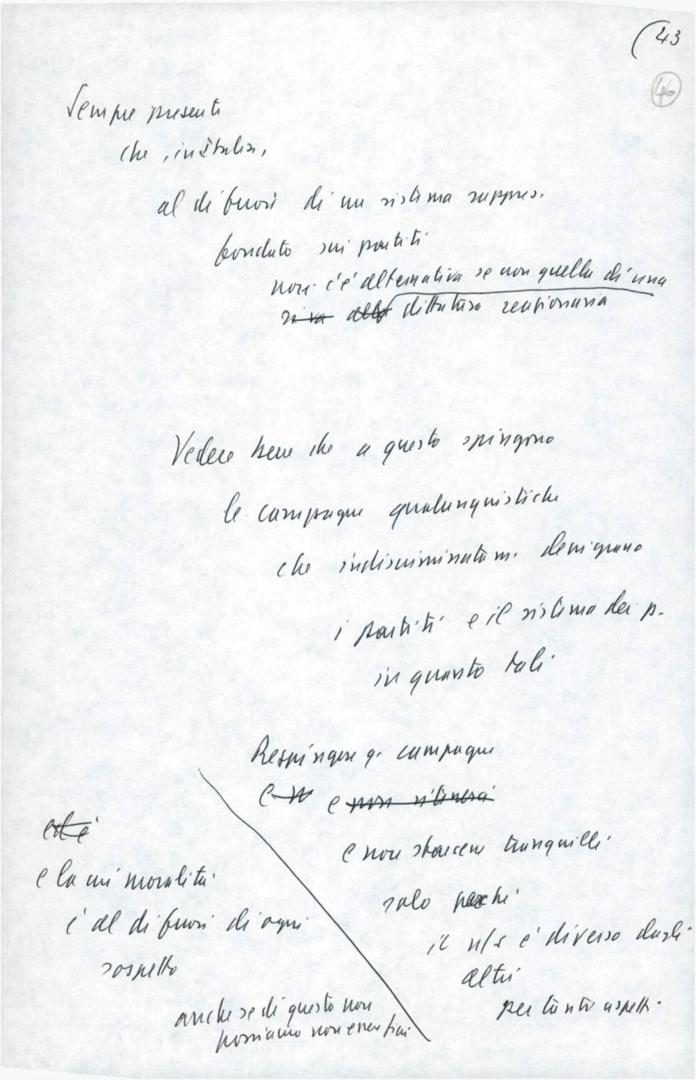 (43
46
Sempre presenti
che, in Italia,
al di fuori di un sistema rappres.
fondato sui partiti
non c'è alternativa se non quella di una
dittatura reazionaria
Vedere bene che a questo spingono
le campagne qualunquistiche
che indiscriminatam. denigrano
i partiti e il sistema dei p.
in quanto tali
Respingere q. campagne
e e non ritenersi
e non starcene tranquilli
solo perché
il n/s è diverso dagli
altri
per tanti aspetti
ed è
e la cui moralità
è al di fuori di ogni
sospetto
anche se di questo non
possiamo non esser fieri